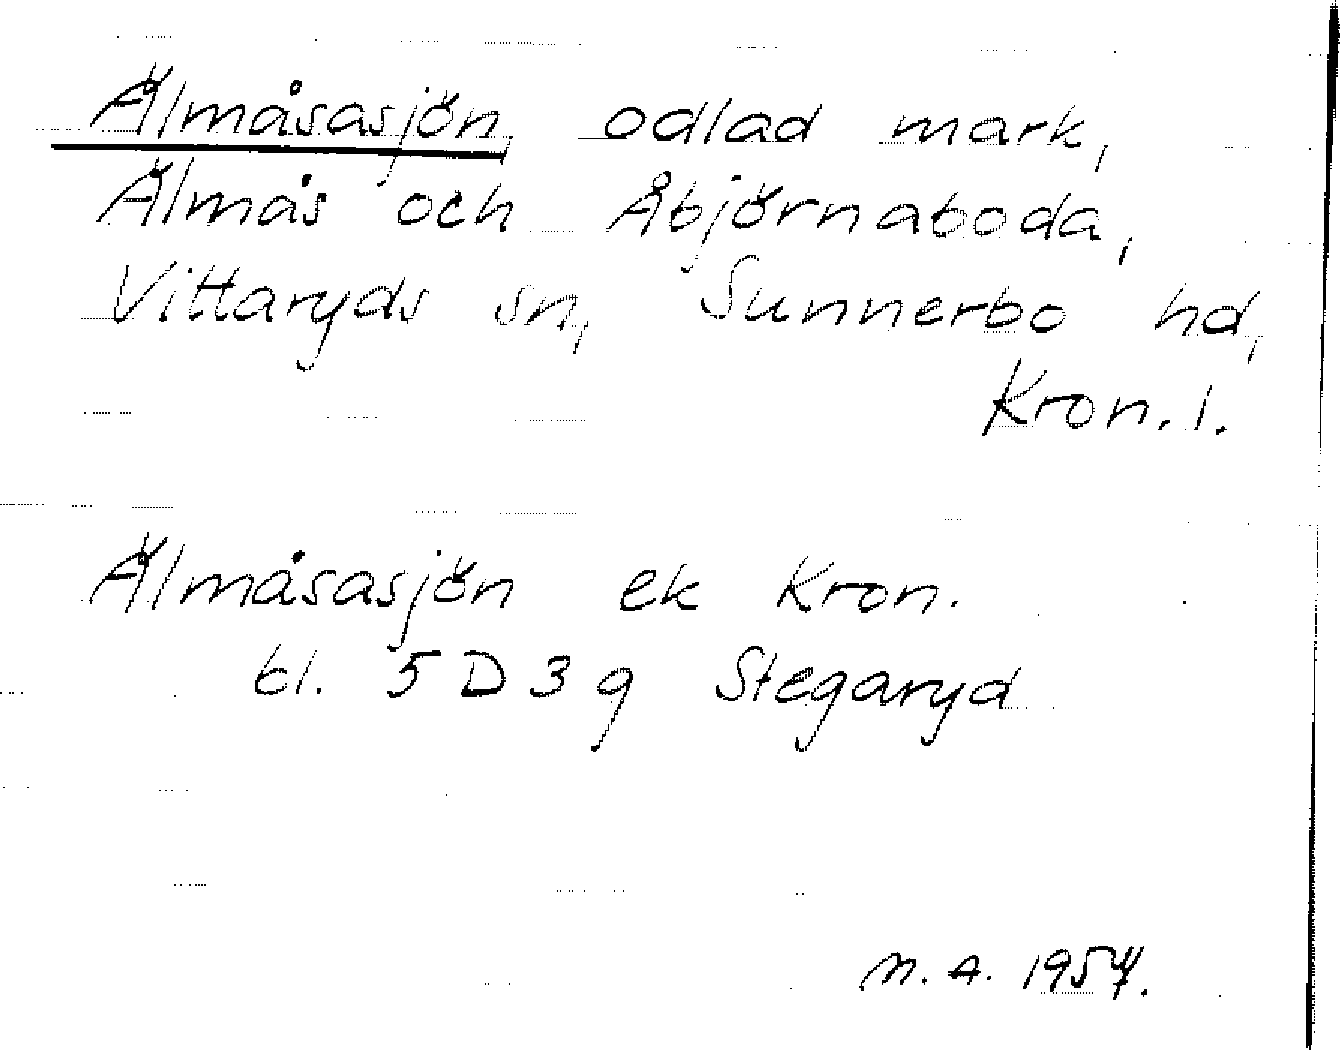 Älmåsasjön, odlad mark,
Älmås och Åbjörnaboda,
Vittaryds sn, Sunnerbo hd,
Kron. l.
Älmåsasjön ek Kron.
bl. 5 D 3 g Stegaryd
n. A. 1957.